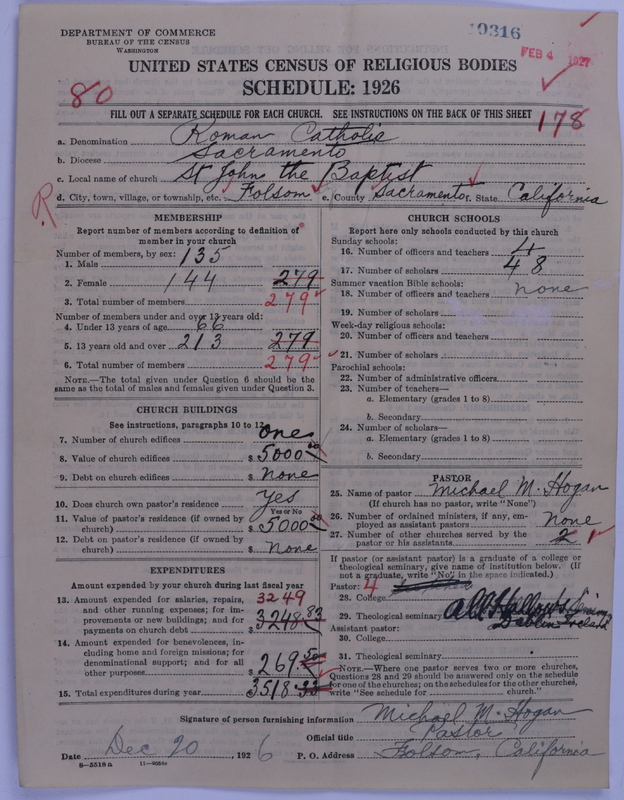 DEPARTMENT OF COMMERCE
BUREAU OF THE CENSUS
WASHINGTON
19316
FEB 4 1927
UNITED STATES CENSUS OF RELIGIOUS BODIES
SCHEDULE: 1926
80
FILL OUT A SEPARATE SCHEDULE FOR EACH CHURCH. SEE INSTRUCTIONS ON THE BACK OF THIS SHEET
178
a. Denomination Roman Catholic
b. Diocese Sacramento
c. Local name of church St Johns the Baptist
d. City, town, village, or township, etc. Folsom e. County Sacramento f. State California
R
MEMBERSHIP
Report number of members according to definition of
member in your church
Number of members, by sex:
1. Male 135
2. Female 144 279
3. Total number of members 279
Number of members under and over 13 years old:
4. Under 13 years of age 66
5. 13 years old and over 213 279
6. Total number of members 279
NOTE.—The total given under Question 6 should be the
same as the total of males and females given under Question 3.
CHURCH BUILDINGS
See instructions, paragraphs 10 to 12
7. Number of church edifices one
8. Value of church edifices $ 5000 00
9. Debt on church edifices $ None
10. Does church own pastor's residence Yes
Yes or No
11. Value of pastor's residence (if owned by
church) $ 5000 00
12. Debt on pastor's residence (if owned by
church) $ None
EXPENDITURES
Amount expended by your church during last fiscal year
13. Amount expended for salaries, repairs, 3249
and other running expenses; for im-
provements or new buildings; and for
payments on church debt $ 3248.83
14. Amount expended for benevolences, in-
cluding home and foreign missions; for
denominational support; and for all
other purposes $ 269 50
15. Total expenditures during year $ 3518.33
CHURCH SCHOOLS
Report here only schools conducted by this church
Sunday schools:
16. Number of officers and teachers 4
17. Number of scholars 48
Summer vacation Bible schools:
18. Number of officers and teachers none
19. Number of scholars
Week-day religious schools:
20. Number of officers and teachers
21. Number of scholars
Parochial schools:
22. Number of administrative officers
23. Number of teachers—
a. Elementary (grades 1 to 8)
b. Secondary
24. Number of scholars—
a. Elementary (grades 1 to 8)
b. Secondary
PASTOR
25. Name of pastor Michael M. Hogan
(If church has no pastor, write "None")
26. Number of ordained ministers, if any, em-
ployed as assistant pastors None
27. Number of other churches served by the
pastor or his assistants 2 1
If pastor (or assistant pastor) is a graduate of a college or
theological seminary, give name of institution below. (If
not a graduate, write "No" in the space indicated.)
Pastor: 4
28. College
29. Theological seminary All Hallows
Dublin Ireland
Assistant pastor:
30. College
31. Theological seminary
NOTE.—Where one pastor serves two or more churches,
Questions 28 and 29 should be answered only on the schedule
for one of the churches; on the schedules for the other churches,
write "See schedule for church."
Signature of person furnishing information Michael M. Hogan
Official title Pastor
Date Dec 20, 1926 P. O. Address Folsom, California
8—5518a 11—9054